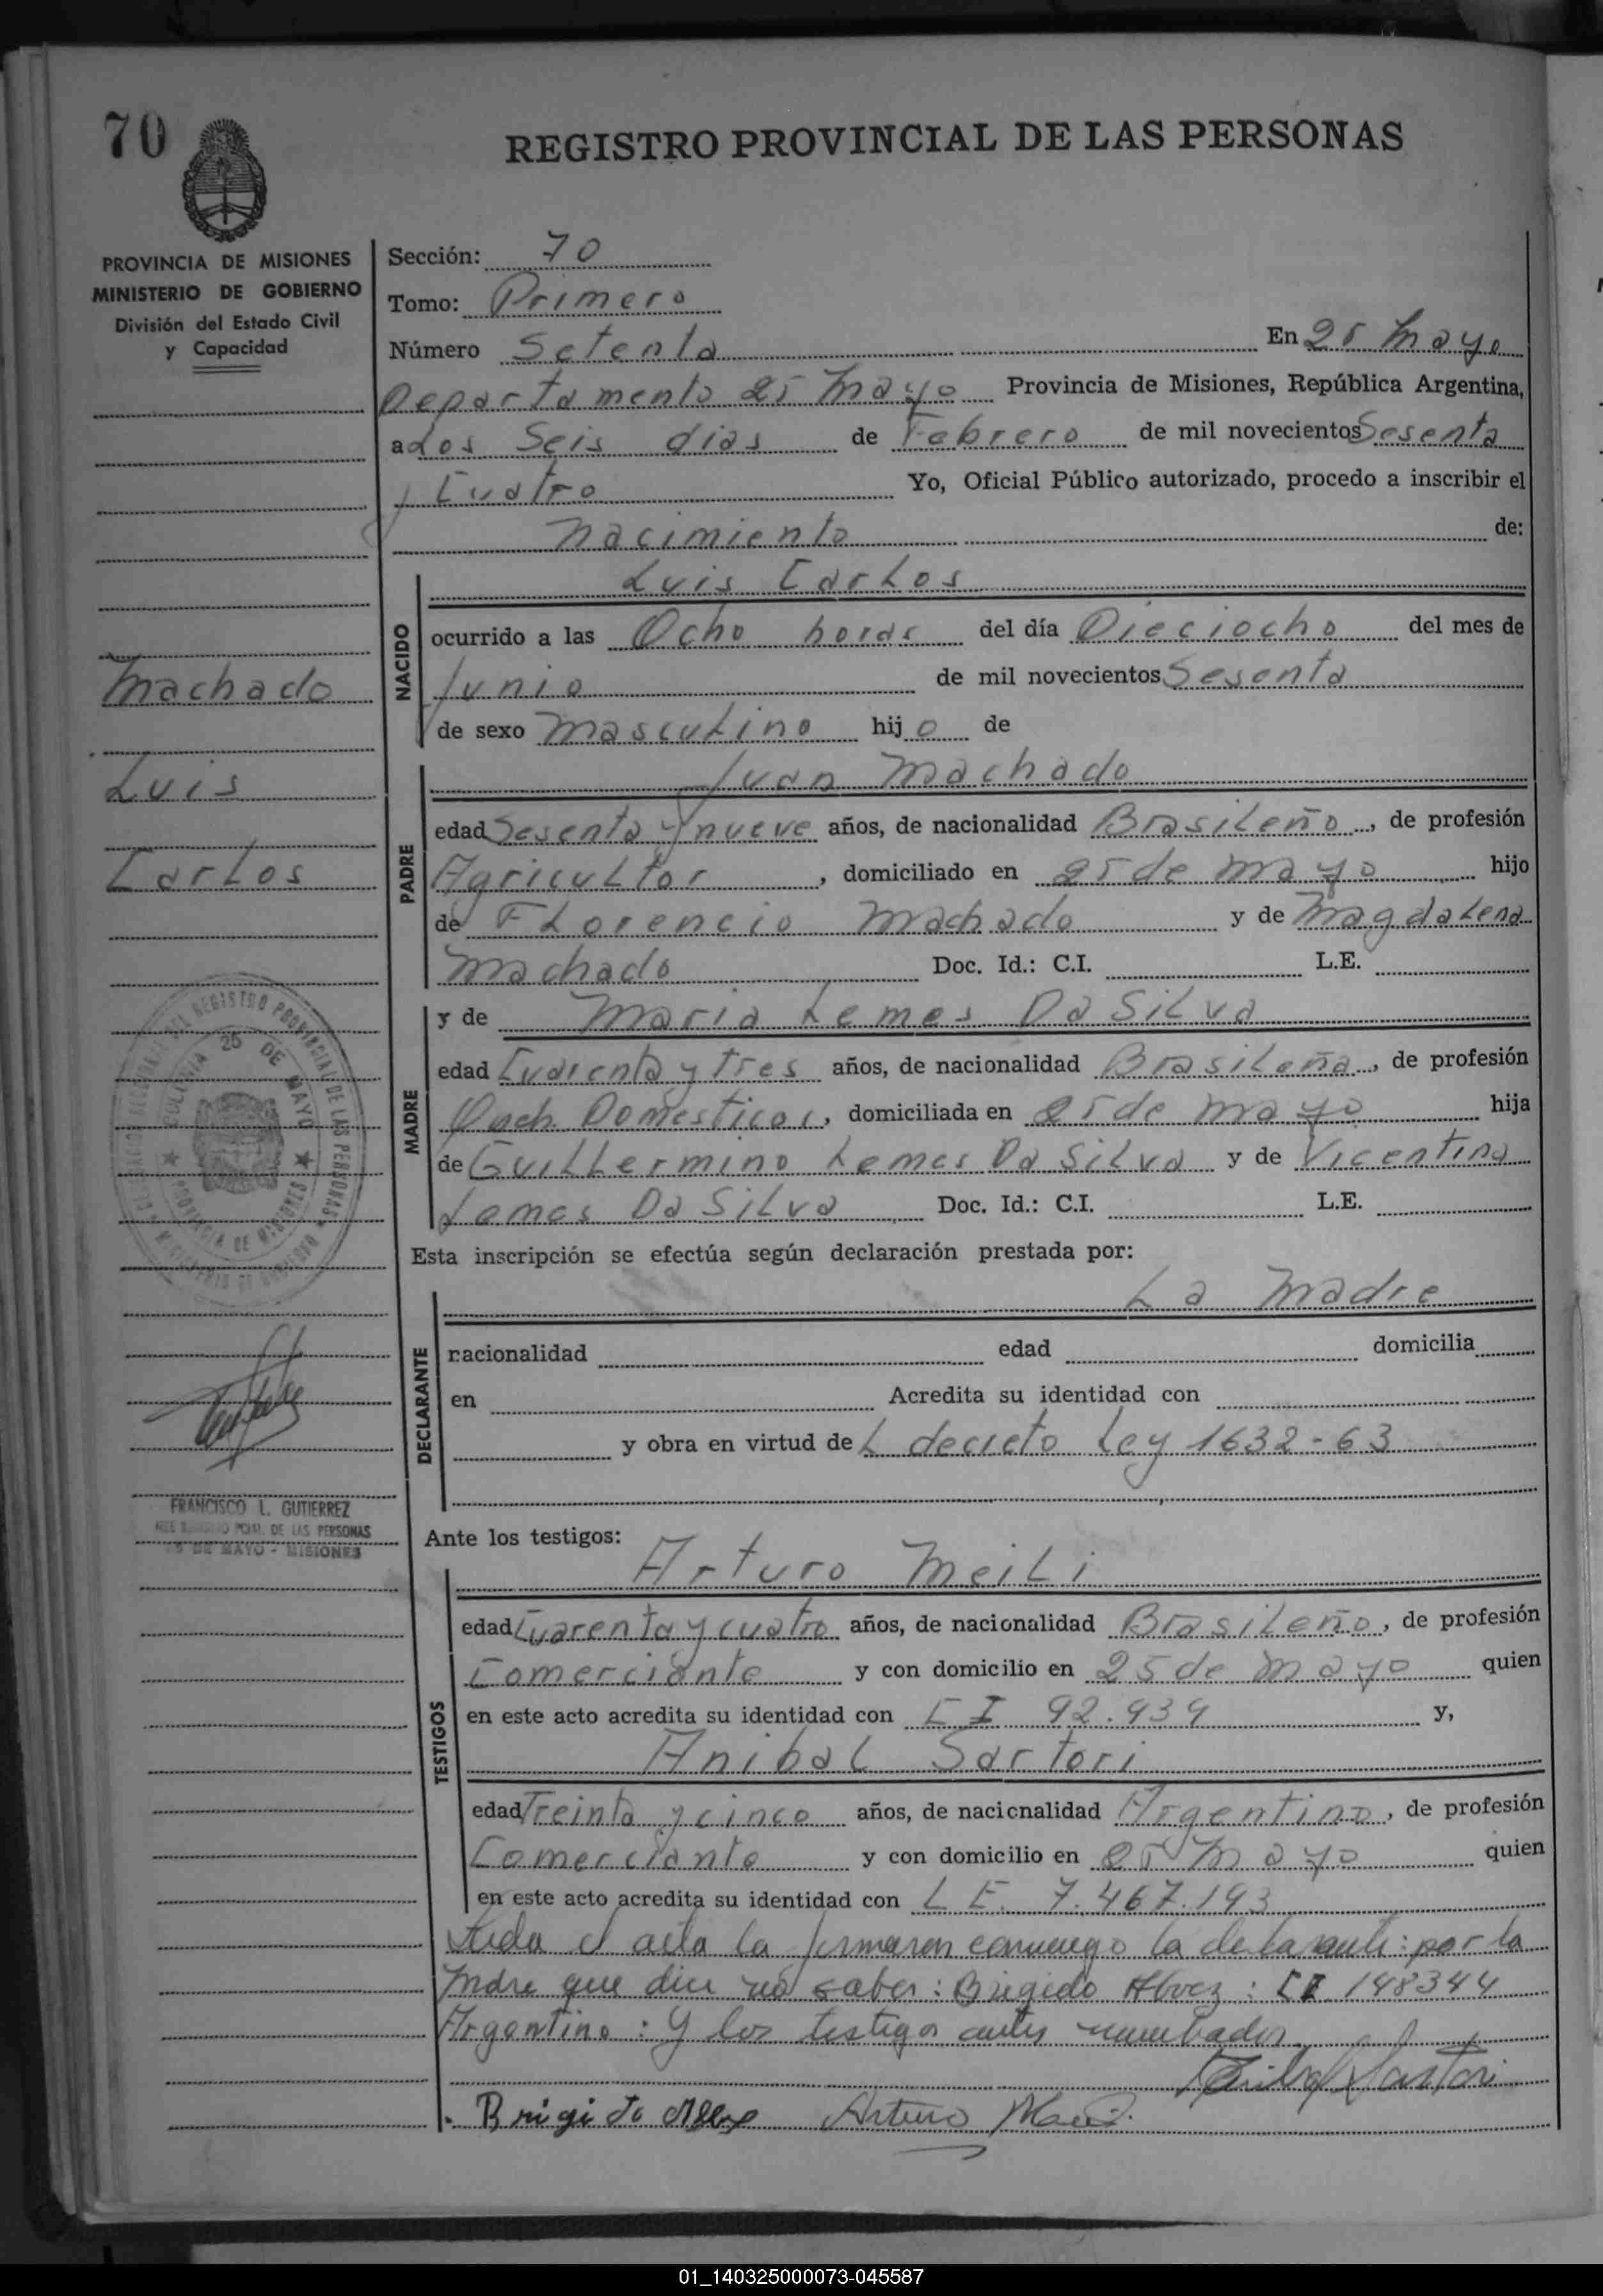 70
REGISTRO PROVINCIAL DE LAS PERSONAS
PROVINCIA DE MISIONES
MINISTERIO DE GOBIERNO
División del Estado Civil
y Capacidad
Sección: 70
Tomo: Primero
Número Setenta En 25 Mayo
Departamento 25 Mayo Provincia de Misiones, República Argentina,
a Los Seis dias de Febrero de mil novecientos Sesenta
y Cuatro Yo, Oficial Público autorizado, procedo a inscribir el
Nacimiento de:
Luis Carlos
NACIDO
ocurrido a las Ocho horas del día Dieciocho del mes de
Junio de mil novecientos Sesenta
de sexo Masculino hijo de
Machado
Luis
Carlos
Juan Machado
PADRE
edad Sesenta y nueve años, de nacionalidad Brasileño, de profesión
Agricultor, domiciliado en 25 de Mayo hijo
de Florencio Machado y de Magdalena
Machado Doc. Id.: C.I. L.E.
y de Maria Lemes Da Silva
MADRE
edad Cuarenta y tres años, de nacionalidad Brasileña, de profesión
Domesticos, domiciliada en 25 de Mayo hija
de Guillermino Lemes Da Silva y de Vicentina
Lemes Da Silva Doc. Id.: C.I. L.E.
REGISTRO PROVINCIAL DE LAS PERSONAS
COLONIA 25 DE MAYO
PROVINCIA DE MISIONES
Esta inscripción se efectúa según declaración prestada por:
La Madre
DECLARANTE
nacionalidad edad domicilia
en Acredita su identidad con
y obra en virtud de L decreto Ley 1632-63
FRANCISCO L. GUTIERREZ
PCIAL. DE LAS PERSONAS
25 DE MAYO - MISIONES
Ante los testigos:
Arturo Meili
TESTIGOS
edad Cuarenta y cuatro años, de nacionalidad Brasileño, de profesión
Comerciante y con domicilio en 25 de Mayo quien
en este acto acredita su identidad con C I 92.939 y,
Anibal Sartori
edad Treinta y cinco años, de nacionalidad Argentino, de profesión
Comerciante y con domicilio en 25 Mayo quien
en este acto acredita su identidad con L E. 7.467.193
Leida el acta la firmaron conmigo la declarante: por la
Madre que dice no saber: Brigido Alvez: C I 148344
Argentino: Y los testigos antes nombrados.
Anibal Sartori
Brigido Alvez Arturo Meili
01_140325000073-045587